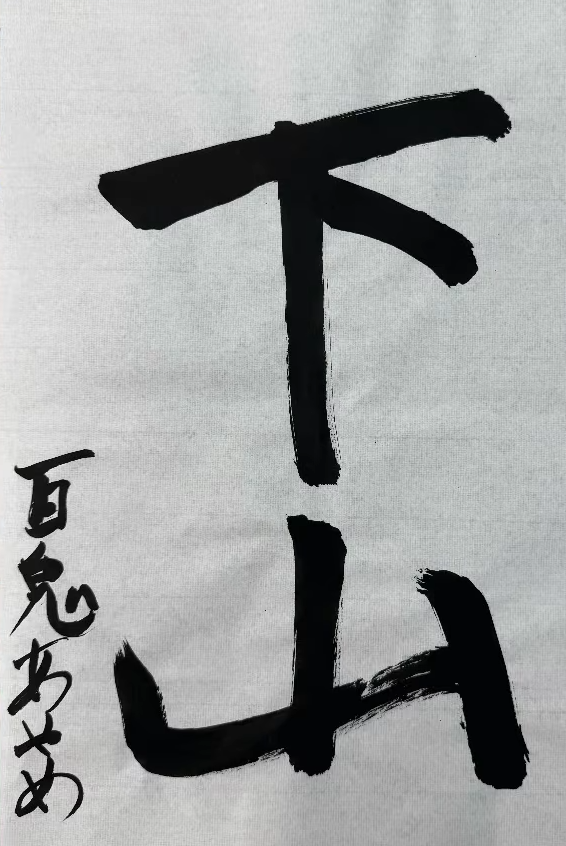 下山
百鬼あせめ